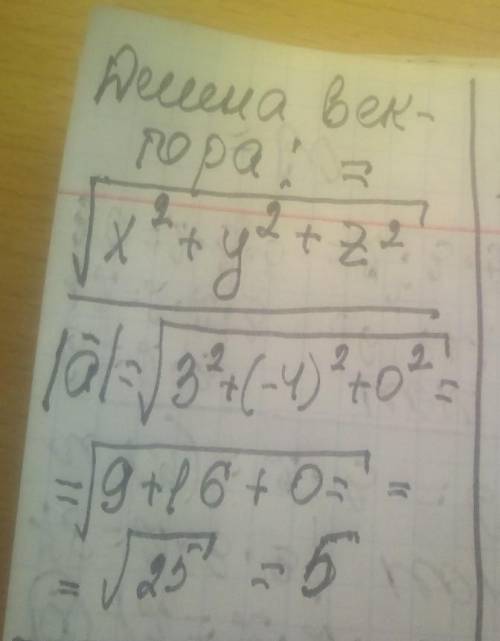 Длина век-
тора: =
√x² + y² + z²
|ā| = √3² + (-4)² + 0² =
= √9 + 16 + 0 = =
= √25 = 5